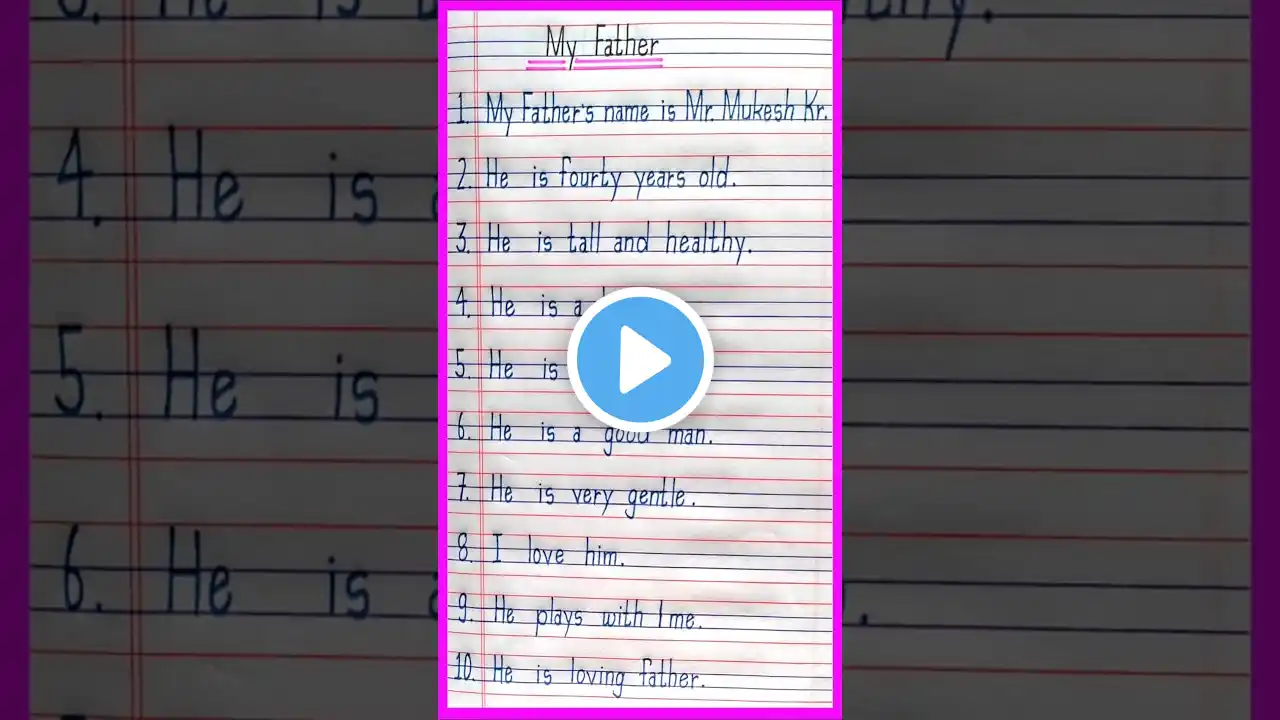 My Father
1. My Father's name is Mr. Mukesh Kr.
2. He is fourty years old.
3. He is tall and healthy.
4. He is a
5. He is
6. He is a good man.
7. He is very gentle.
8. I love him.
9. He plays with me.
10. He is loving father.
4. He is
5. He is
6. He is